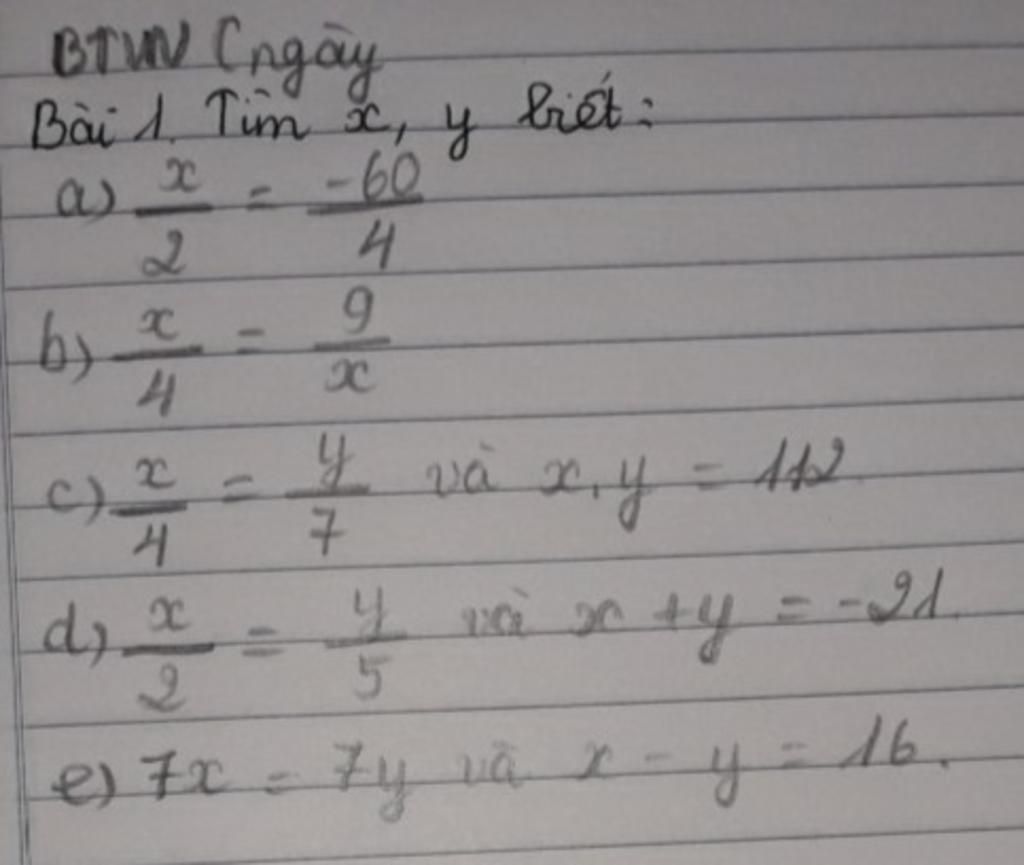 BTVN (ngày
Bài 1. Tìm x, y biết:
a) x/2 = -60/4
b) x/4 = 9/x
c) x/4 = y/7 và x.y = 112
d) x/2 = y/5 và x + y = -21.
e) 7x = 7y và x - y = 16.